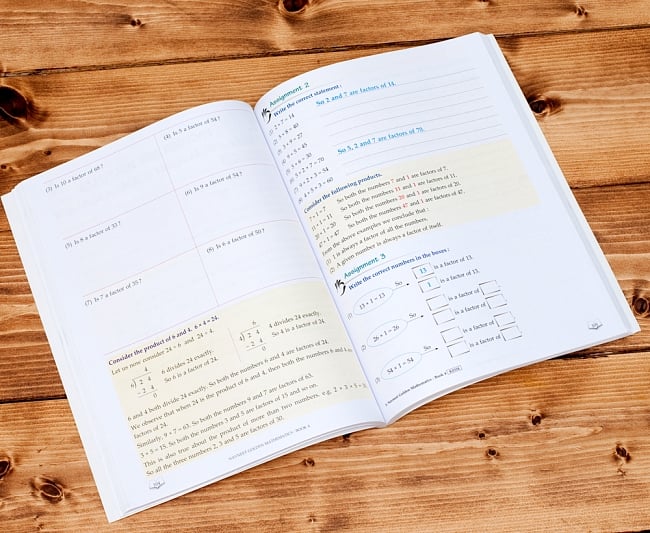 (3) Is 10 a factor of 68?
(4) Is 5 a factor of 34?
(5) Is 8 a factor of 33?
(6) Is 9 a factor of 54?
(7) Is 7 a factor of 35?
(8) Is 6 a factor of 50?
Consider the product of 6 and 4. 6 × 4 = 24.
Let us now consider 24 ÷ 6 and 24 ÷ 4.
4
6) 2 4
– 2 4
0
6 divides 24 exactly.
So 6 is a factor of 24.
6
4) 2 4
– 2 4
0
4 divides 24 exactly.
So 4 is a factor of 24.
6 and 4 both divide 24 exactly. So both the numbers 6 and 4 are factors of 24.
We observe that when 24 is the product of 6 and 4, then both the numbers 6 and 4 are
factors of 24.
Similarly, 9 × 7 = 63. So both the numbers 9 and 7 are factors of 63.
3 × 5 = 15. So both the numbers 3 and 5 are factors of 15 and so on.
This is also true about the product of more than two numbers. e.g. 2 × 3 × 5 =
So all the three numbers 2, 3 and 5 are factors of 30.
NAVNEET GOLDEN MATHEMATICS : BOOK 4
Assignment 2
Write the correct statement :
(1) 2 × 7 = 14
So 2 and 7 are factors of 14.
(2) 5 × 8 = 40
(3) 3 × 9 = 27
(4) 9 × 5 = 45
(5) 5 × 6 = 30
(6) 5 × 2 × 7 = 70
So 5, 2 and 7 are factors of 70.
(7) 9 × 2 × 3 = 54
(8) 4 × 5 × 3 = 60
Consider the following products.
7 × 1 = 7 So both the numbers 7 and 1 are factors of 7.
11 × 1 = 11 So both the numbers 11 and 1 are factors of 11.
20 × 1 = 20 So both the numbers 20 and 1 are factors of 20.
47 × 1 = 47 So both the numbers 47 and 1 are factors of 47.
From the above examples we conclude that :
(1) 1 is always a factor of all the numbers.
(2) A given number is always a factor of itself.
Assignment 3
Write the correct numbers in the boxes :
(1) 13 × 1 = 13 So 13 is a factor of 13.
1 is a factor of 13.
(2) 26 × 1 = 26 So is a factor of
is a factor of
(3) 54 × 1 = 54 So is a factor of
is a factor of